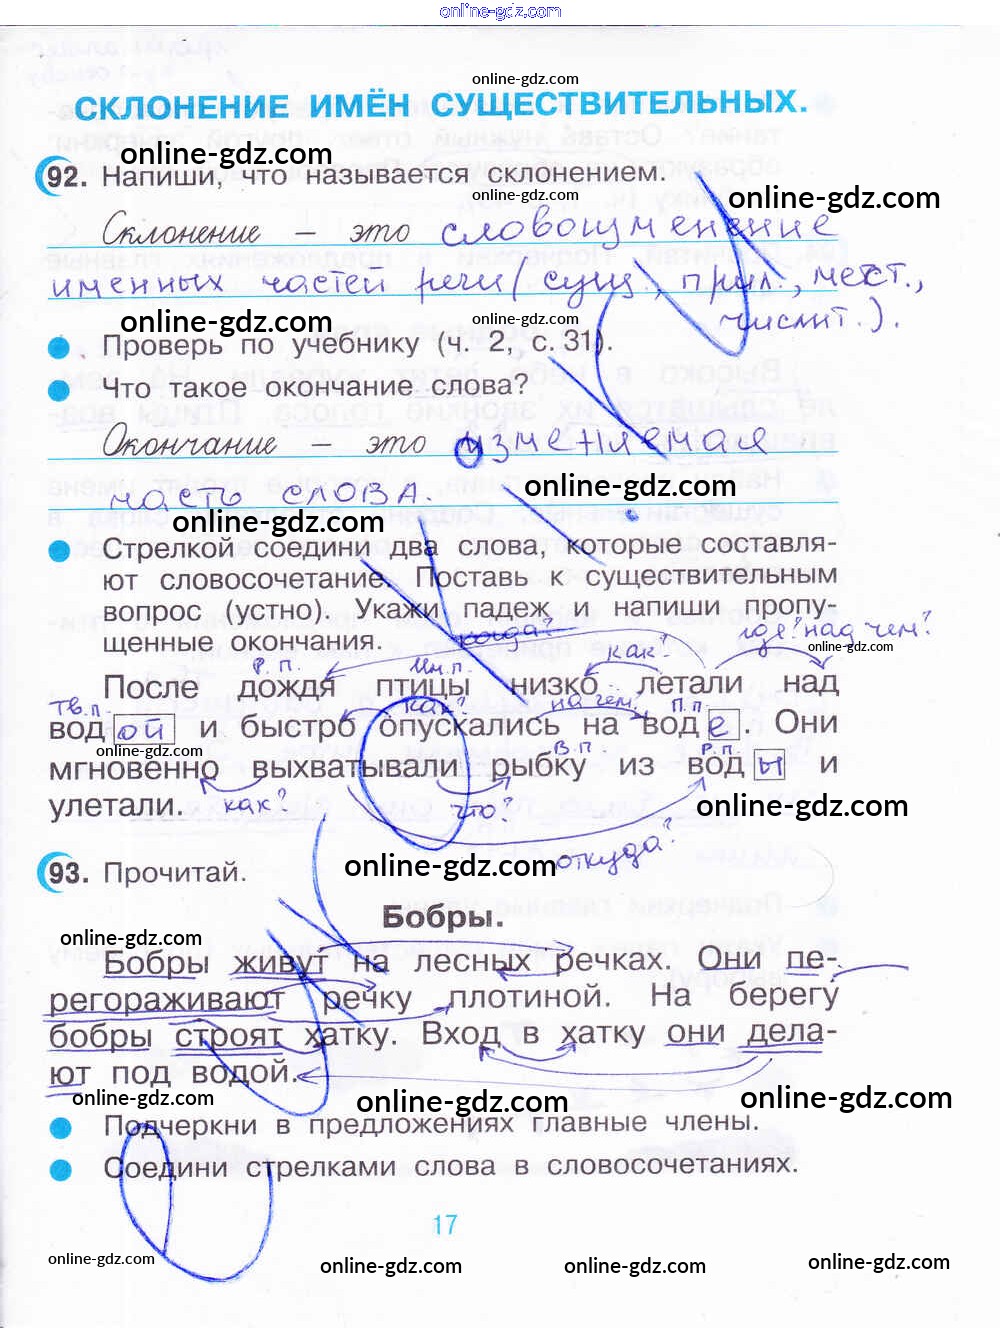 online-gdz.com
online-gdz.com
СКЛОНЕНИЕ ИМЁН СУЩЕСТВИТЕЛЬНЫХ.
online-gdz.com
92. Напиши, что называется склонением.
online-gdz.com
Склонение – это словоизменение
именных частей речи (сущ., прил., мест.,
числит.).
online-gdz.com
Проверь по учебнику (ч. 2, с. 31).
Что такое окончание слова?
Окончание – это изменяемая
online-gdz.com
часть слова.
online-gdz.com
Стрелкой соедини два слова, которые составля-
ют словосочетание. Поставь к существительным
вопрос (устно). Укажи падеж и напиши пропу-
щенные окончания.
когда? как? где? над чем?
Р. п. Им.п.
После дождя птицы низко летали над
Тв.п. как? на чем? П.п.
вод ой и быстро опускались на вод е . Они
В.п. Р.п
мгновенно выхватывали рыбку из вод ы и
улетали. как? что?
online-gdz.com
откуда?
online-gdz.com
93. Прочитай.
Бобры.
online-gdz.com
Бобры живут на лесных речках. Они пе-
регораживают речку плотиной. На берегу
бобры строят хатку. Вход в хатку они дела-
ют под водой.
online-gdz.com
online-gdz.com
online-gdz.com
Подчеркни в предложениях главные члены.
Соедини стрелками слова в словосочетаниях.
17
online-gdz.com
online-gdz.com
online-gdz.com
online-gdz.com